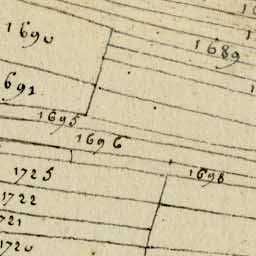 1690
1689
691
1695
1696
1725
1698
1722
721
1720